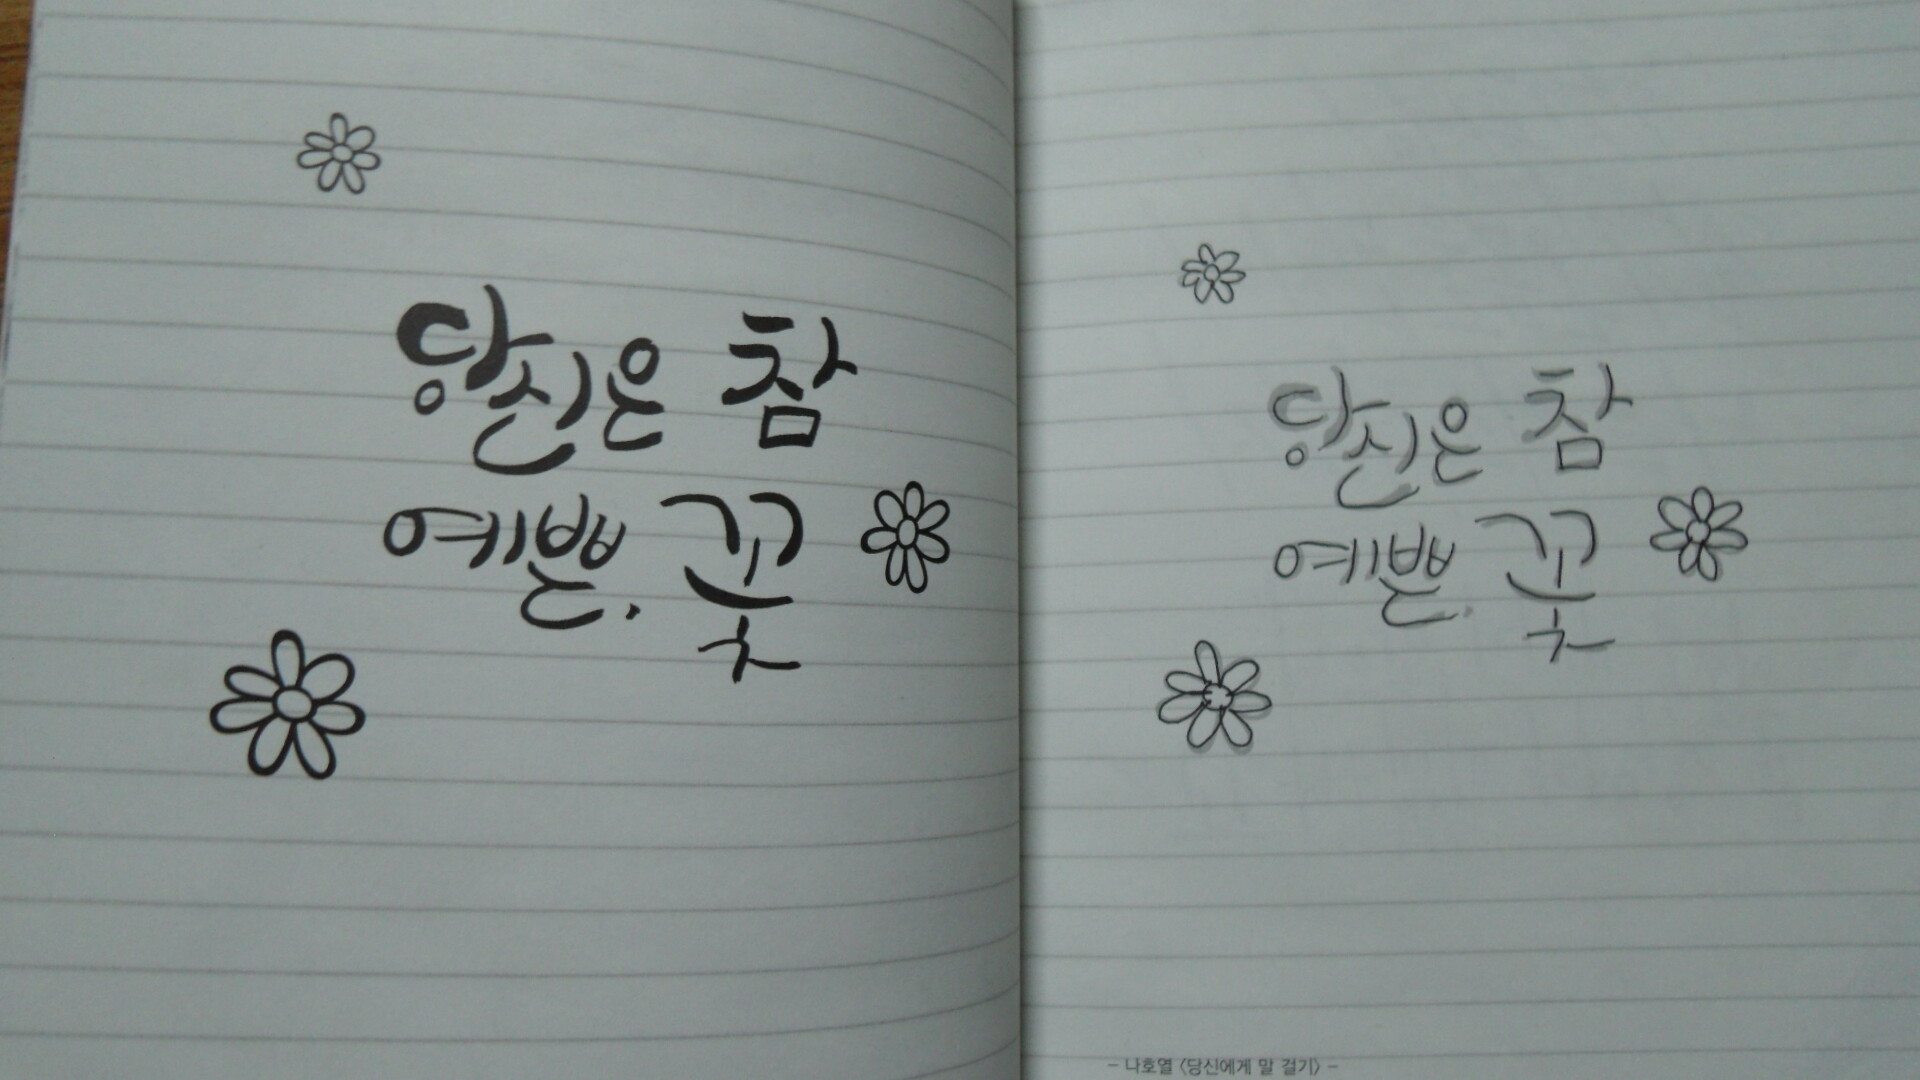 당신은 참
예쁜. 꽃
당신은 참
예쁜. 꽃
- 나호열 〈당신에게 말 걸기〉 -